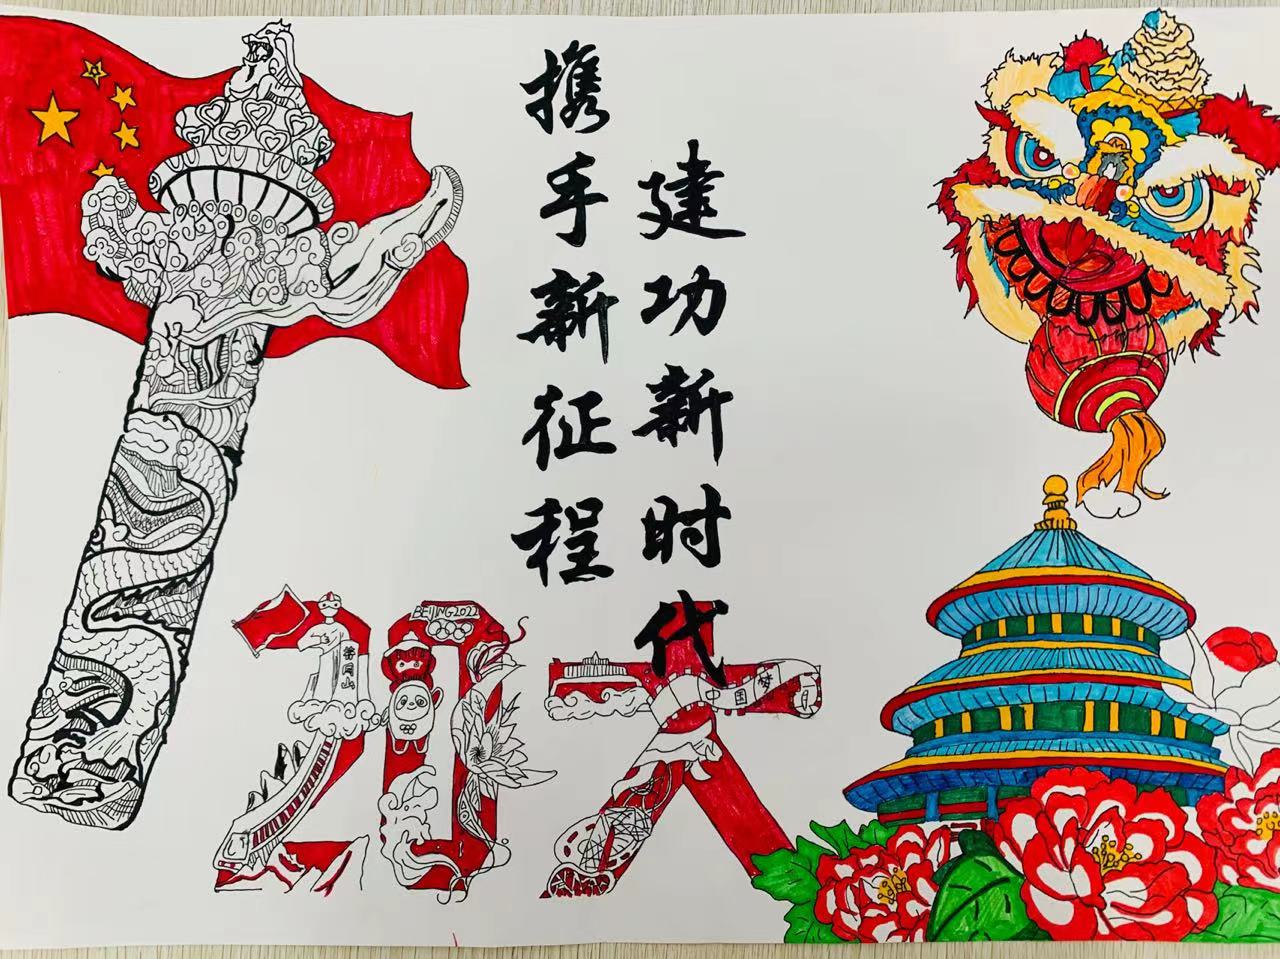 携手新征程
建功新时代
BEIJING2022
20大
中国梦